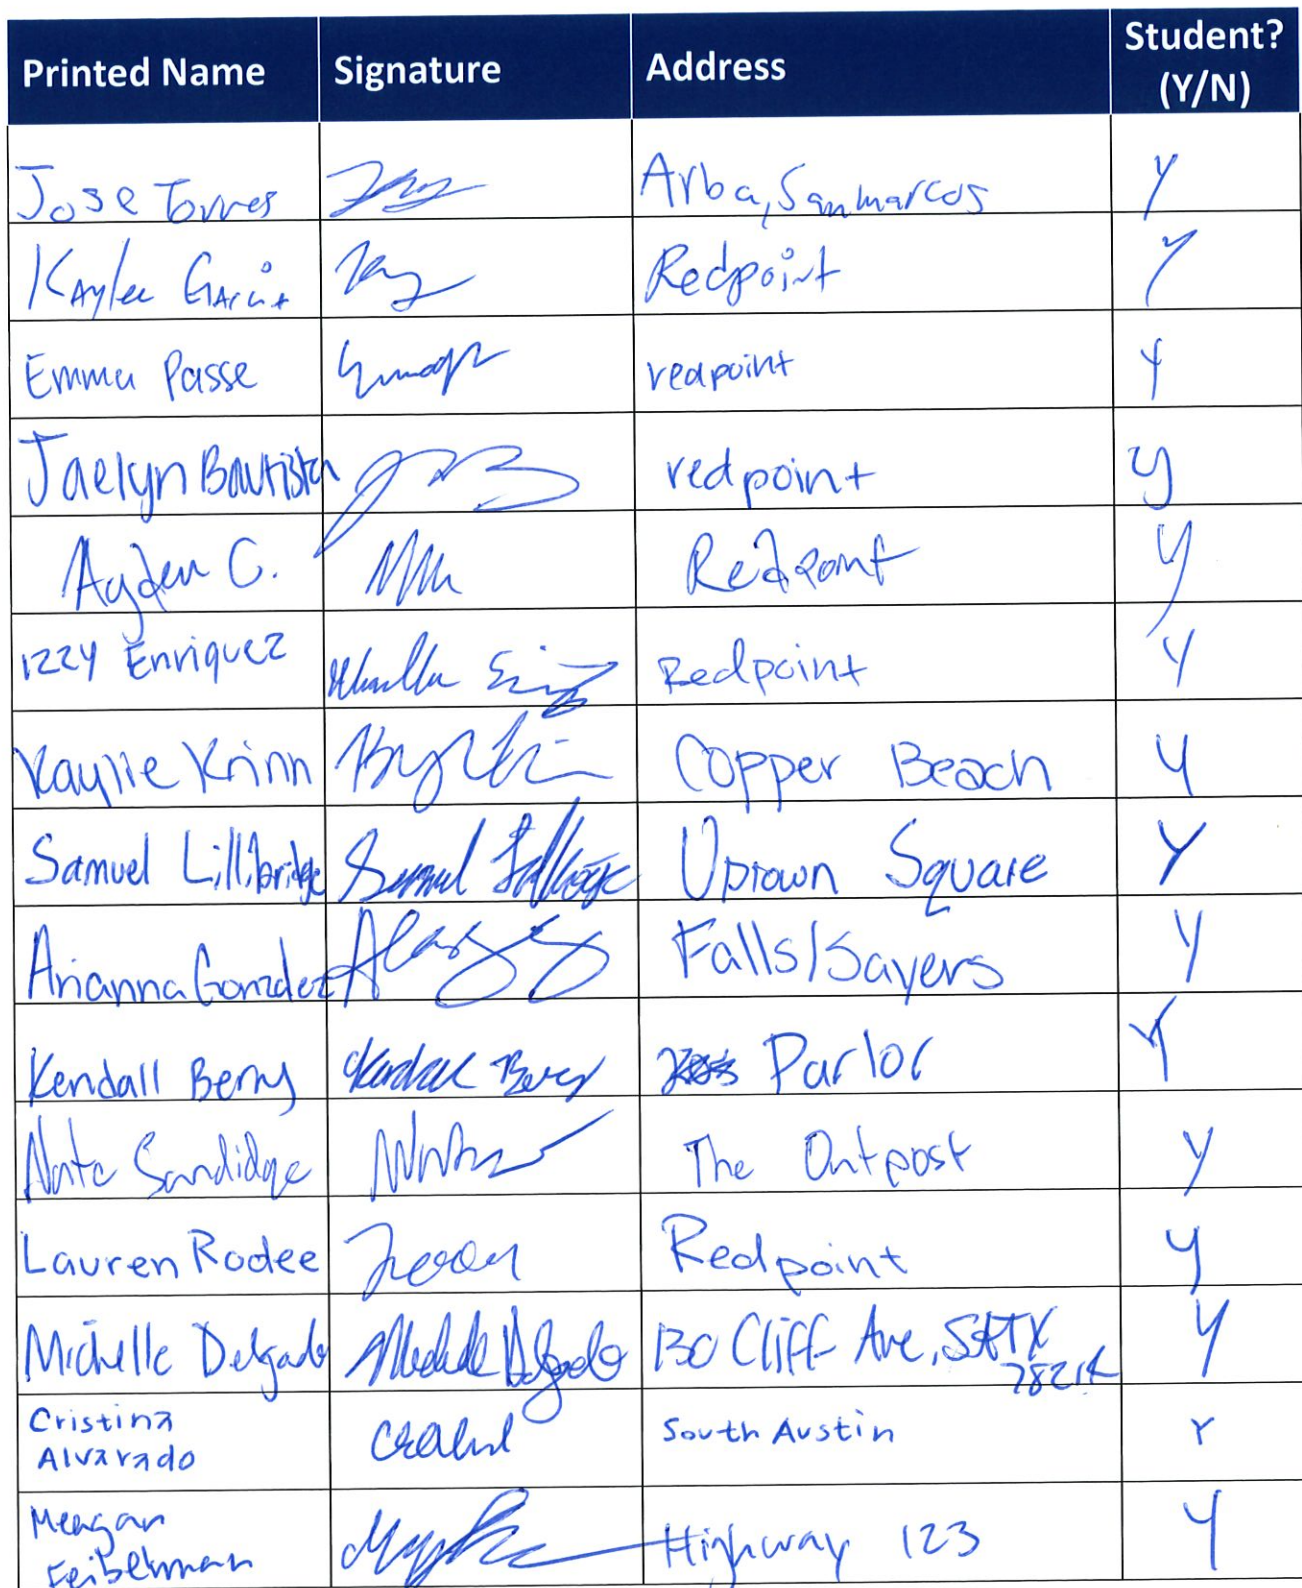 Printed Name Signature Address Student? (Y/N)
Jose Torres Arba, San marcos Y
Kaylee Garcia Redpoint Y
Emma Passe redpoint Y
Jaelyn Bautista redpoint y
Ayden C. Redpoint y
Izzy Enriquez Redpoint Y
Kaylie Krinn Copper Beach Y
Samuel Lillibridge Samuel Lillibridge Uptown Square Y
Arianna Gonzalez Falls/Sayers Y
Kendall Berry Kendall Berry Parlor Y
Nate Sandidge The Outpost Y
Lauren Rodee Redpoint y
Michelle Delgado Michelle Delgado 130 Cliff Ave, SATX
Y
Cristina
Alvarado South Austin Y
Meagan
Feibelman Highway 123 Y